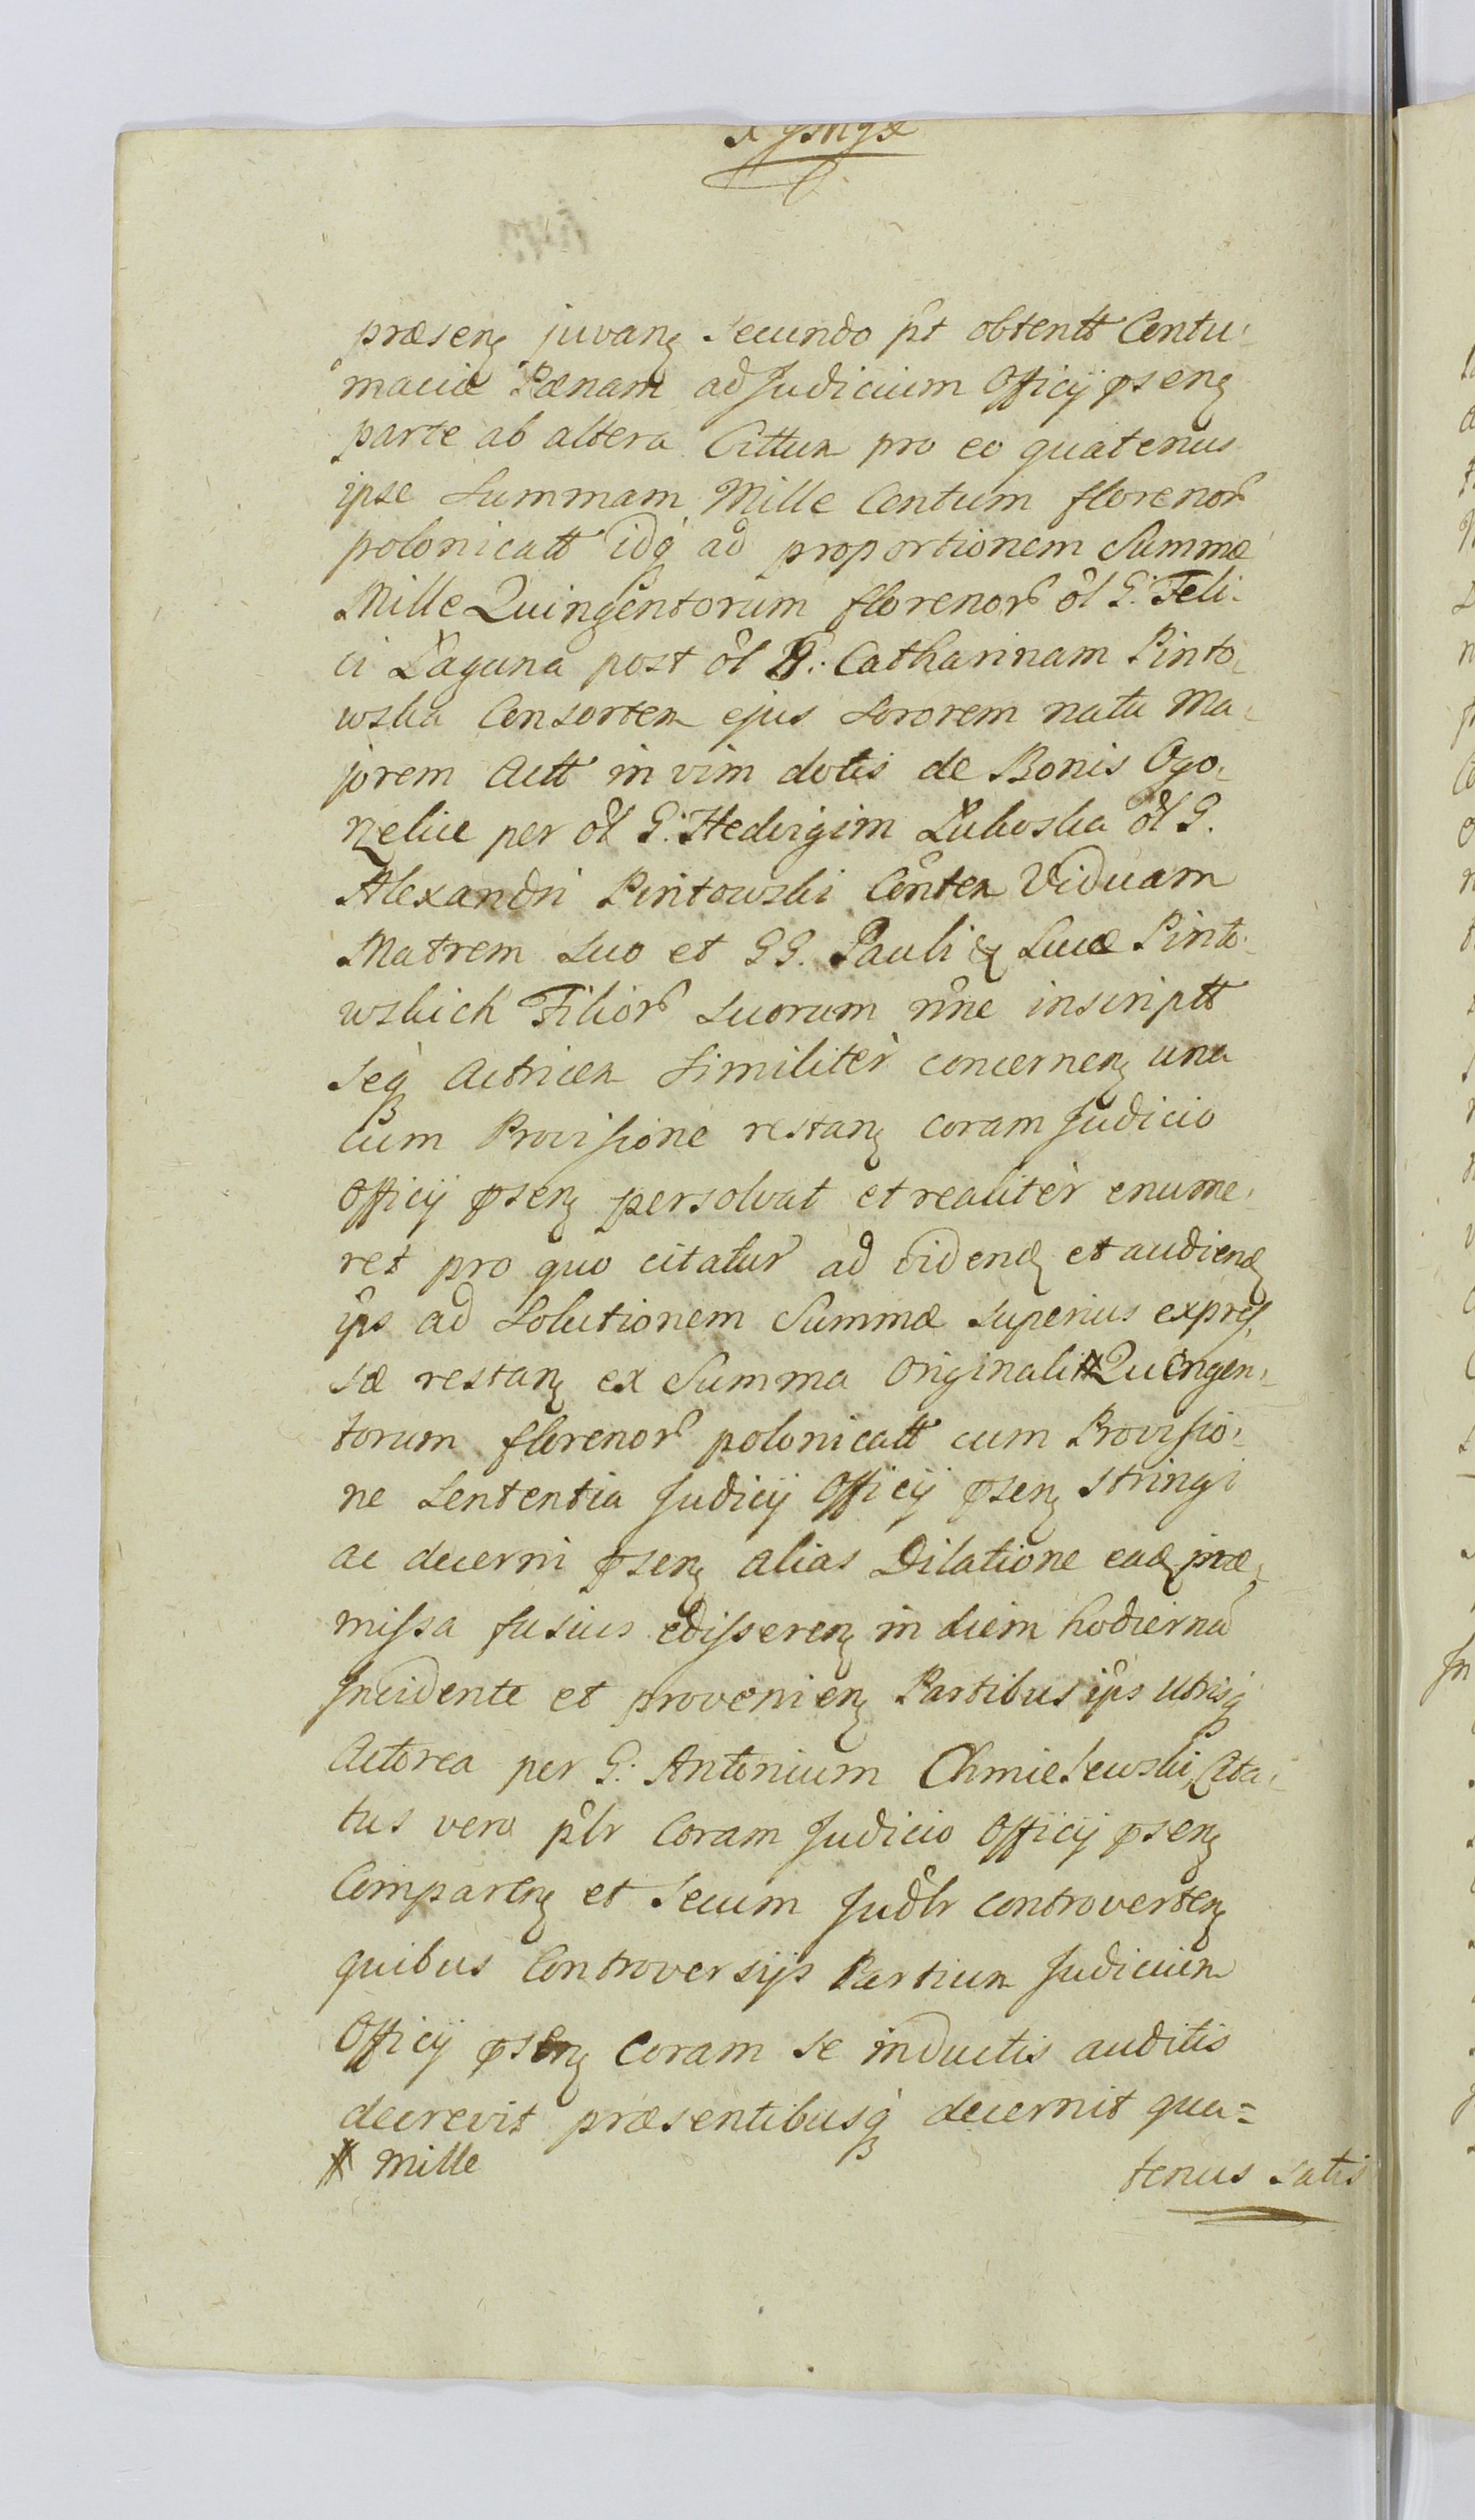 præsenz juvanz secundo pt obtentt Contu-
maciæ Pænam ad Judicium Officij psenz
parte ab altera Cittum pro eo quatenus
ipse Summam Mille Centum florenor
polonicatt idq ad proportionem Summæ
Mille Quingentorum florenor ol G. Feli-
ci Łaguna post ol G: Catharinam Pinto-
wska Consortem ejus Sororem natu Ma-
jorem Actt in vim dotis de Bonis Ogo-
per ol G: Hedvigim ol G.
Alexandri Pintowski Conten Viduam
Matrem suo et GG. Pauli & Lucæ Pinto-
wskich Filior suorum nne inscriptt
seq Actricem similiter concernenz una
cum Provisione restanz coram Judicio
Officij psenz persolvat et realiter enume-
ret pro quo citatur ad videnđ et audienđ
ips ad Solutionem Summæ superius expres
sæ restanz ex Summa Originali # Quingen-
torum florenor polonicatt cum Provisio-
ne Sententia Judicij Officij psenz stringi
ac decerni psenz alias Dilatione eađ præ-
missa fusius edisserenz in diem hodierna
Incidente et provenienz Partibus ips utrisq
Actorea per G: Antonium Chmielewski, Cita-
tus vero plr Coram Judicio Officij psenz
Comparenz et secum Judlr controvertenz
quibus Controversijs Partium Judicium
Officij psenz Coram se inductis auditis
decrevit præsentibusq decernit qua=
# Mille
tenus satis